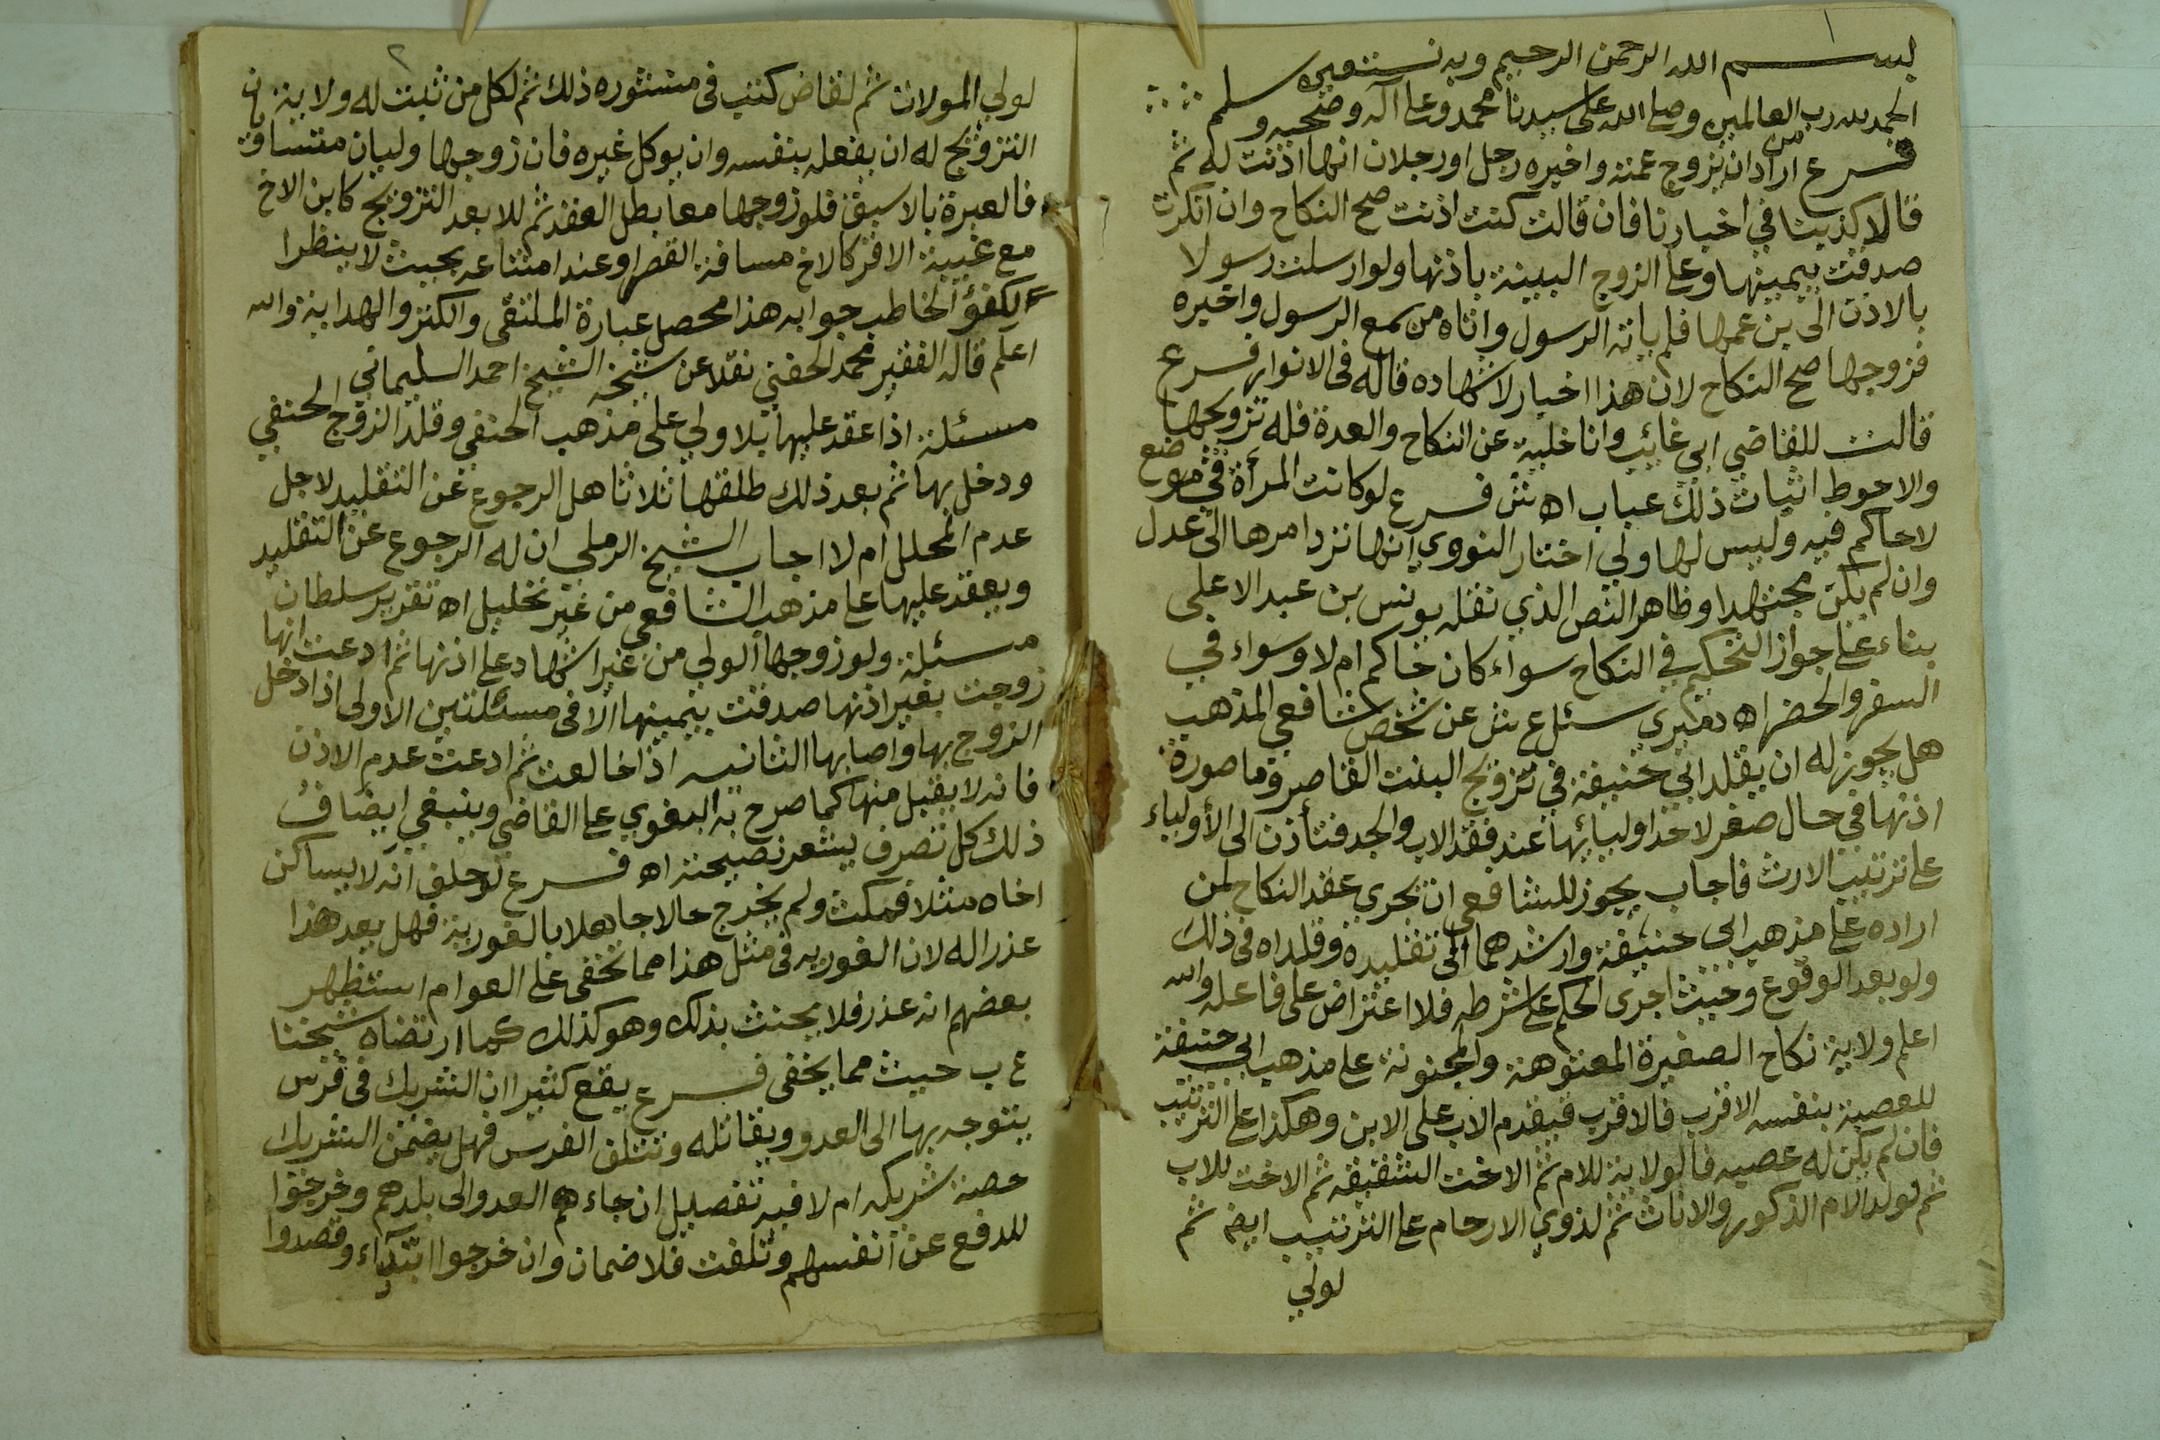 ١
بســـــم الله الرحمن الرحيم وبه نستعين
الحمد لله رب العالمين وصلى الله على سيدنا محمد وعلى آله وصحبه وسلم
فـــرع اراد ان يزوج عمته واخبره رجل اورجلان انها اذنت له ثم
قالا كذبنا في اخبارنا فان قالت كنت اذنت صح النكاح وان انكرت
صدقت بيمينها وعلى الزوج البينة باذنها ولوارسلت رسولا
بالاذن الى بن عمها فلم ياته الرسول واتاه من سمع الرسول واخبره
فزوجها صح النكاح لان هذا اخبار لا شهاده قاله في الانوار فـرع
قالت للقاضي ابي غائب وانا خلية عن النكاح والعدة فله تزويجها
والاحوط اثبات ذلك عباب اه ش فــرع لو كانت المرأة في موضع
لا حاكم فيه وليس لها ولي اختار النووي انها ترد امرها الى عدل
وان لم يكن مجتهدا وظاهر النص الذي نقله يونس بن عبد الاعلى
بناء على جواز التحكيم في النكاح سواء كان حاكم ام لا وسواء في
السفر والحضر اه دميري سئل ع ش عن شخص شافعي المذهب
هل يجوز له ان يقلد ابي حنيفة في تزويج البنت القاصر وما صورة
اذنها في حال صغر لاحد اوليائها عند فقد الاب والجد فتأذن الى الأولياء
على ترتيب الارث فاجاب يجوز للشافعي ان يجري عقد النكاح لمن
اراده على مذهب ابي حنيفة وارشدهما الى تقليده وقلداه في ذلك
ولو بعد الوقوع وحيث اجرى الحكم على شرطه فلا اعتراض على فاعله والله
اعلم ولاية نكاح الصغيرة المعتوهة والمجنونة على مذهب ابي حنيفة
للعصبة بنفسه الاقرب فالاقرب فيقدم الاب على الابن وهكذا على الترتيب
فان لم يكن له عصبه فالولاية للام ثم الاخت الشقيقه ثم الاخت للاب
ثم لولد الام الذكور والاناث ثم لذوي الارحام على الترتيب ايضا ثم
لولي
٢
لولي الموالات ثم لقاض كتب في منشوره ذلك ثم لكل من ثبت له ولاية في
التزويج له ان يفعله بنفسه وان يوكل غيره فان زوجها وليان
فالعبرة بالاسبق فلو زوجها معا بطل العقد ثم للابعد التزويج كابن الاخ
مع غيبة الاقرب كالاخ مسافة القصر وعند امتناعه بحيث لا ينظر
الكفؤ الخاطب جوابه هذا محصل عبارة الملتقى والكنز والهداية والله
اعلم قاله الفقير محمد الحفني نقلا عن شيخه الشيخ احمد السليماني
مسئلة اذا عقد عليها بلا ولي على مذهب الحنفي وقلد الزوج الحنفي
ودخل بها ثم بعد ذلك طلقها ثلاثا هل الرجوع عن التقليد لاجل
عدم المحلل ام لا اجاب الشيخ الرملي ان له الرجوع عن التقليد
ويعقد عليها على مذهب الشافعي من غير تحليل اه تقرير سلطان
مسئلة ولو زوجها الولي من غير اشهاد على اذنها ثم ادعت انها
زوجت بغير اذنها صدقت بيمينها الا في مسئلتين الاولى اذا دخل
الزوج بها واصابها الثانيه اذا خالعت ثم ادعت عدم الاذن
فانه لا يقبل منها كما صرح به البغوي على القاضي وينبغي ايضا في
ذلك كل تصرف يشعر بصحته اه فـــرع لو حلف انه لا يساكن
اخاه مثلا فمكث ولم يخرج حالا جاهلا بالفورية فهل يعد هذا
عذرا له لان الفوريه في مثل هذا مما تخفى على العوام استظهر
بعضهم انه عذر فلا يحنث بذلك وهو كذلك كما ارتضاه شيخنا
ع ب حيث مما يخفى فـــرع يقع كثيرا ان الشريك في فرس
يتوجه بها الى العدو ويقاتله وتتلف الفرس فهل يضمن الشريك
حصة شريكه ام لا فيه تفصيل ان جاءهم العدو الى بلدهم وخرجوا
للدفع عن انفسهم وتلفت فلا ضمان وان خرجوا ابتداء وقصدوا